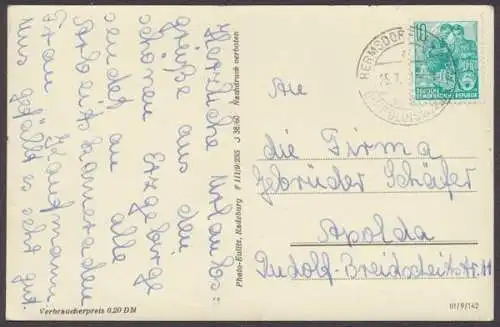 Herzliche Urlaubs-
grüße aus dem
schönen Erzgebirge
sendet an alle
Arbeitskameraden
Frau Hauptmann
Uns gefällt es sehr gut.
Verbraucherpreis 0,20 DM
Photo-Bulitz, Radeburg F III/9/205 J 38/60 Nachdruck verboten
HERMSDORF
10
DEUTSCHE
DEMOKRATISCHE REPUBLIK
An
die Firma
Gebrüder Schäfer
Apolda
Rudolf-Breidscheitstr. 11
III/9/142